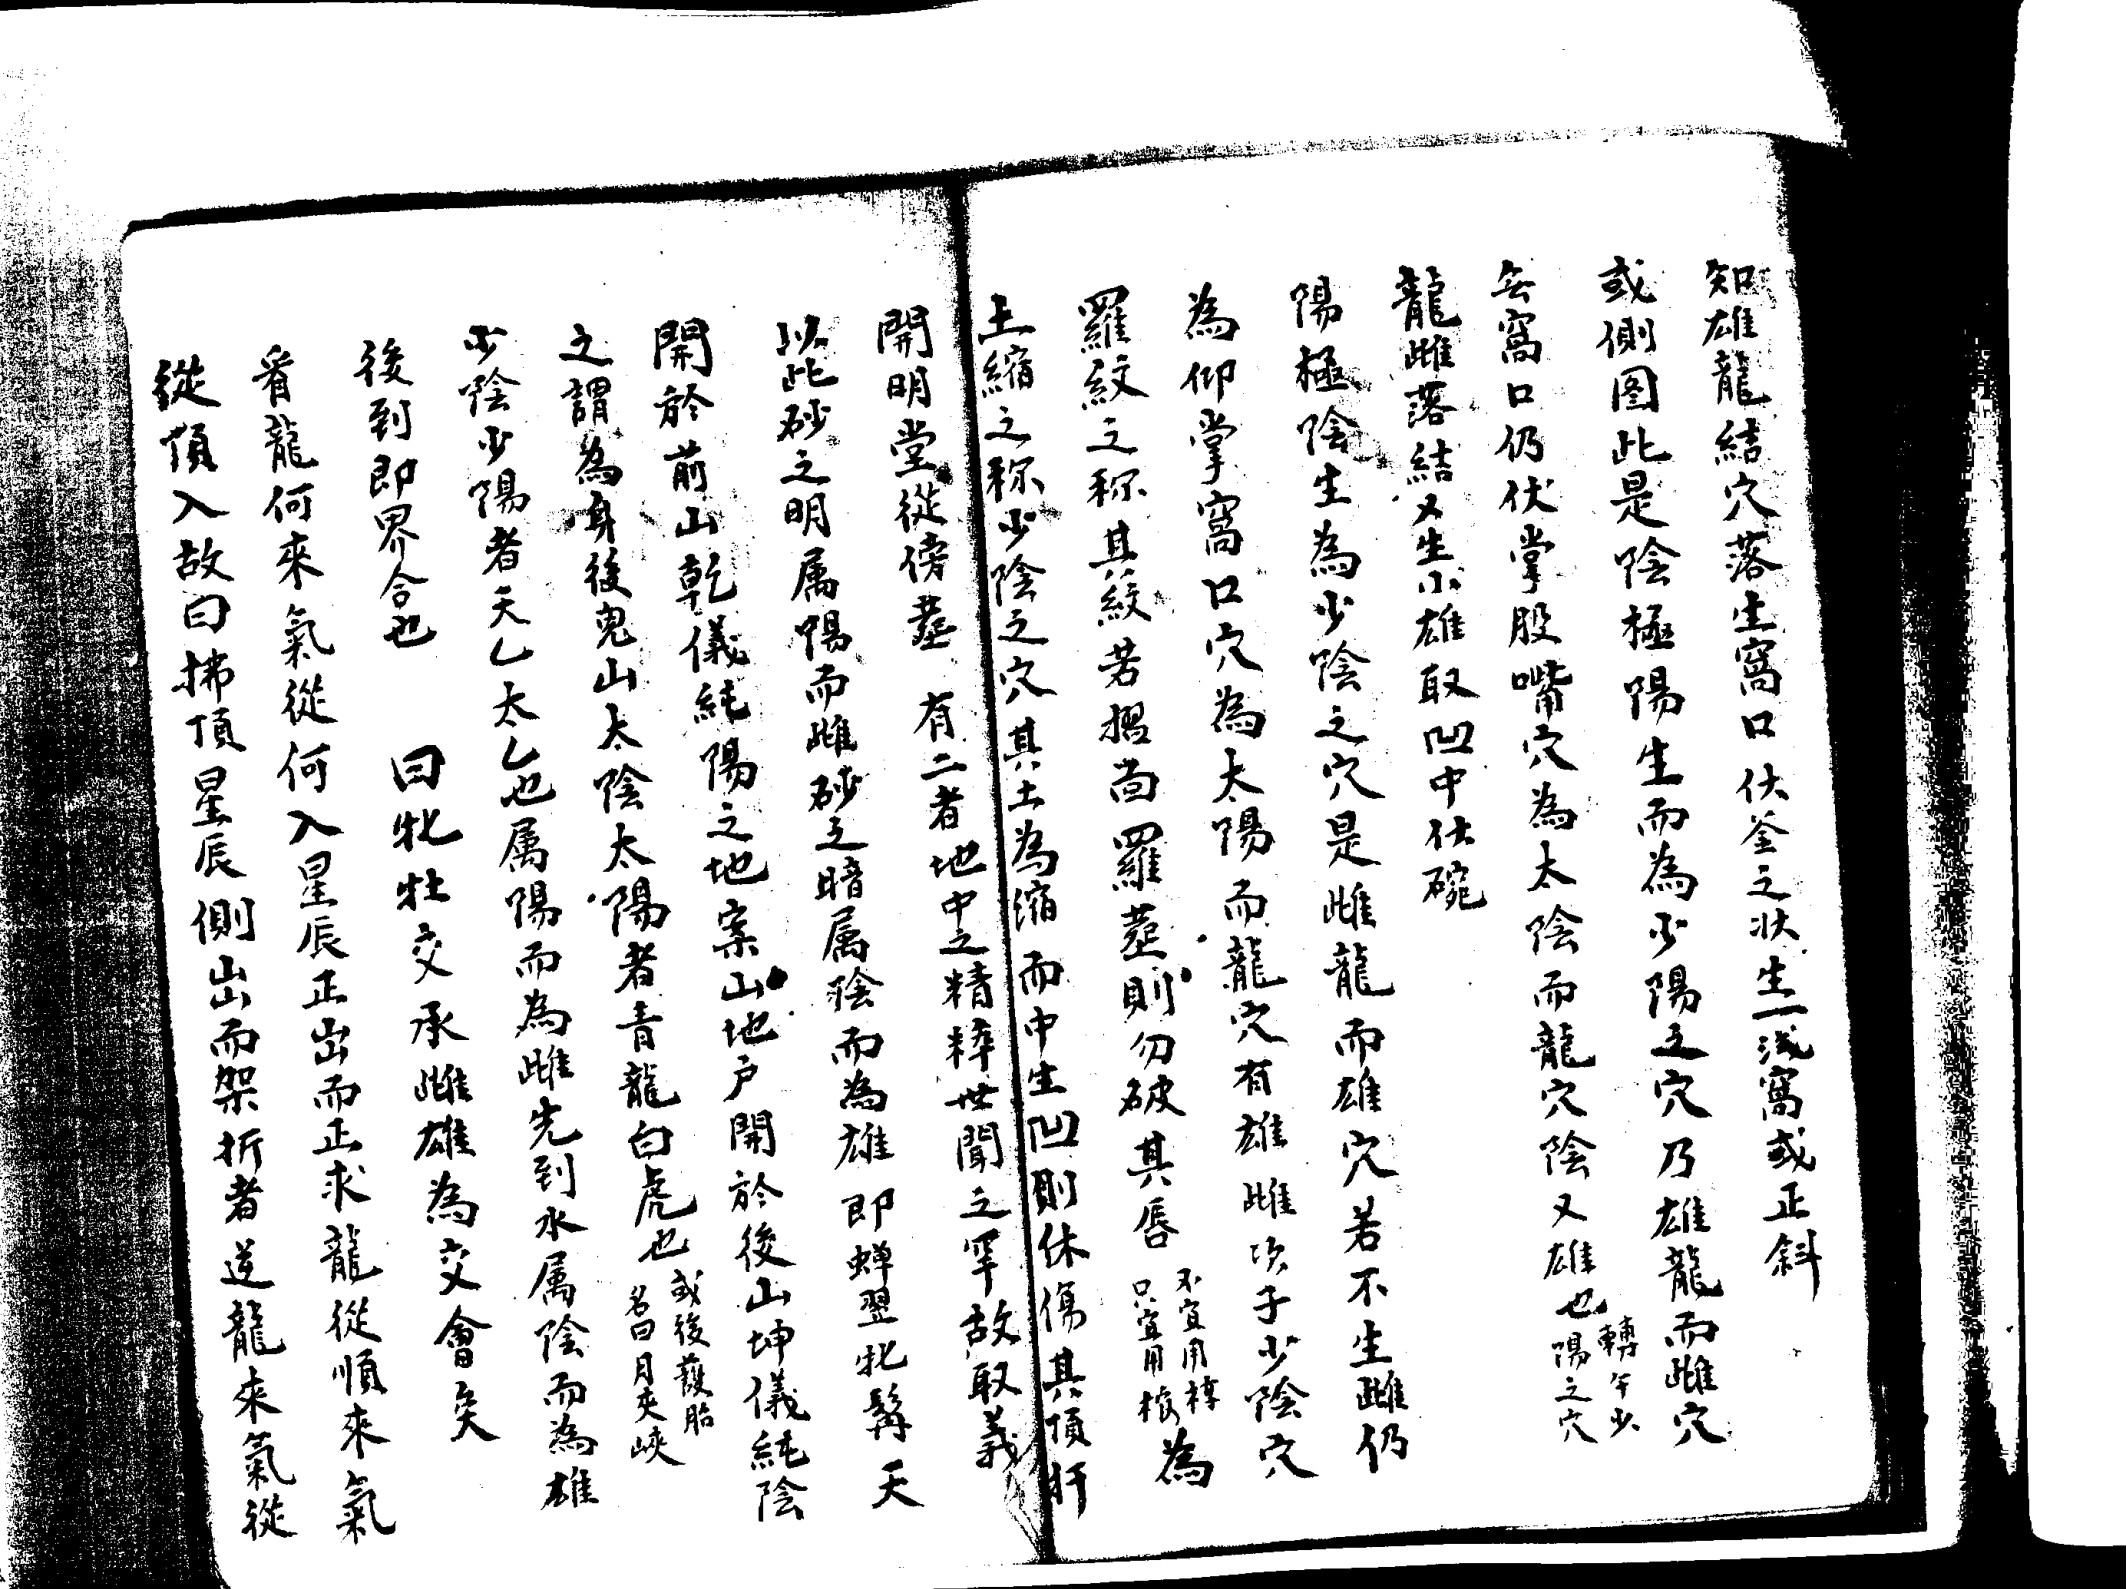 知雄龍結穴落生窩口伏釜之狀生一浅窩或正斜
或側图此是陰極陽生而為少陽之穴乃雄龍而雌穴
無窩口仍伏掌股嘴穴為太陰而龍穴陰又雄也
轉午少
陽之穴
龍雌落結又生小雄取凹中仕碗
陽極陰生為少陰之穴是雌龍而雄穴若不生雌仍
為仰掌窩口穴為太陽而龍穴有雄雌次子少陰穴
羅紋之称其紋若摺尚羅葬則勿破其唇
不宜用
只宜用
為
土縮之称少陰之穴其土為縮而中生凹則休傷其頂
開明堂從傍葬有二者地中之精粹世聞之罕故取義
以此砂之明属陽而雌砂之暗属陰而為雄即蝉翌牝髯天
開於前山乾儀純陽之地案山地户開於後山坤儀純陰
之謂為身後鬼山太陰太陽者青龍白虎也
或後護胎
名曰月夾峽
少陰少陽者天乙太乙也属陽而為雌先到水属陰而為雄
後到即界合也 曰牝牡交承雌雄為交會矣
看龍何來氣從何入星辰正出而正求龍從順來氣
從頂入故曰拂頂星辰側出而架折者逆龍來氣從